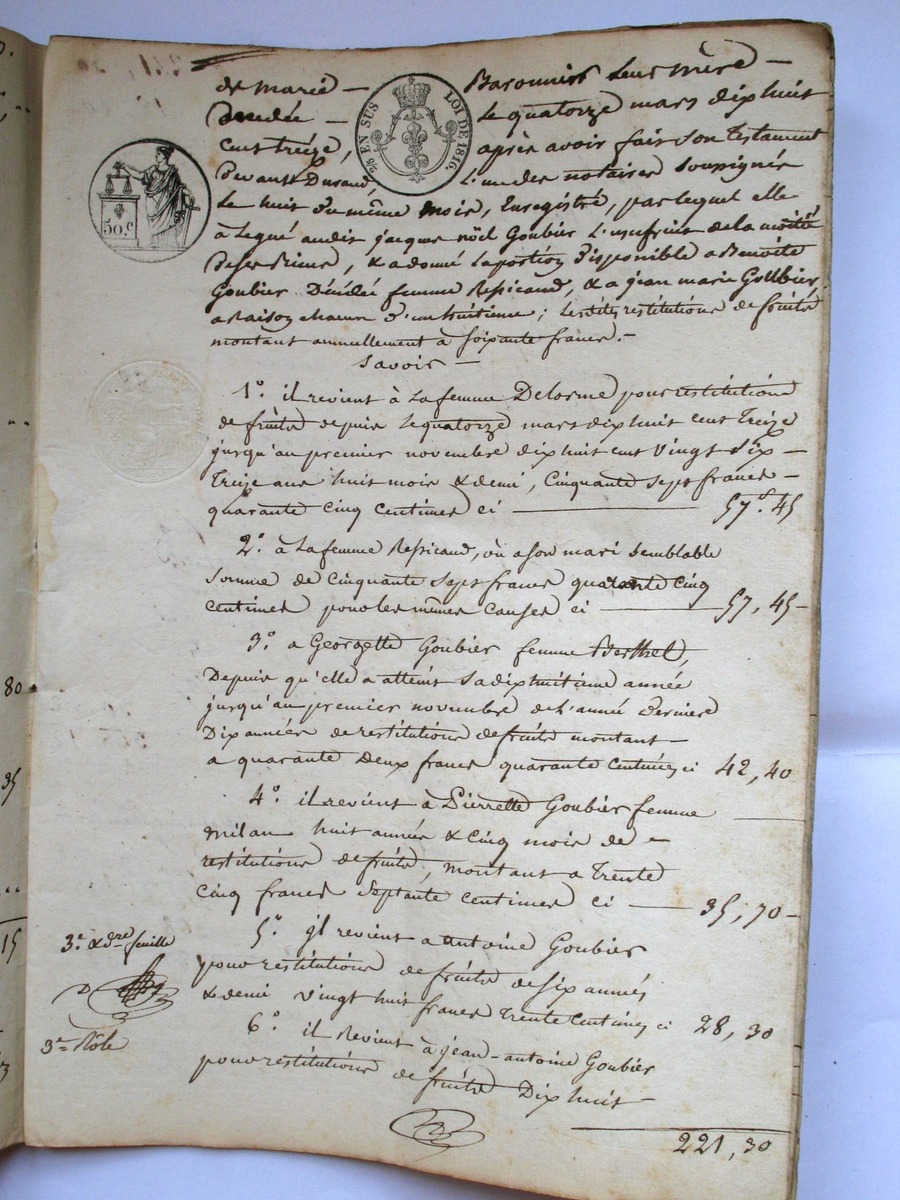 de marie — Baronnier Leur mère —
Décédée — Le quatorze mars dix huit
cent treize, après avoir fait son Testament
Devant Durand, L'un des notaires soussignés
Le huit du même mois, Enregistré, par lequel elle
à Legué audit jacques nöel Goubier L'usufruit de la moitié
De ses Biens, & a donné La portion Disponible a Benoite
Goubier Décédée femme Repicaud, & a jean marie Goubier,
a Raison chacun d'un huitieme; Lesdites restitutions de fruits
montant annuellement à soixante francs. —
Savoir —
1.° il revient à La femme Delorme pour restitutions
de fruits depuis Le quatorze mars dix huit cent Treize
jusqu'au premier novembre dix huit cent vingt Six —
Treize ans huit mois & demi, Cinquante sept francs
quarante Cinq Centimes ci — 57.f 45
2.° à La femme Repicaud, où a son mari semblable
Somme de Cinquante Sept francs quarante Cinq
Centimes pour les mêmes Causes ci — 57, 45 –
3.° a Georgette Goubier femme Berthet,
Depuis qu'elle a atteint sa dix huitieme année
jusqu'au premier novembre de L'année Derniere
Dix années de restitutions de fruits montant —
a quarante Deux francs quarante Centimes ci 42, 40
4.° il revient à Pierrette Goubier femme
Milan huit années & Cinq mois de –
restitutions de fruits, montant a Trente
Cinq francs Septante Centimes Ci — 35, 70 –
5.° jl revient a Antoine Goubier
pour restitutions de fruits de Six années
& demi vingt huit francs Trente Centimes ci 28, 30
6.° il Revient à jean-antoine Goubier
pour restitutions de fruits Dix huit —
221, 30
3.e & d.re feuille
3.me Rôle
2/10 EN SUS LOI DE 1816.
50.c
80
35
15